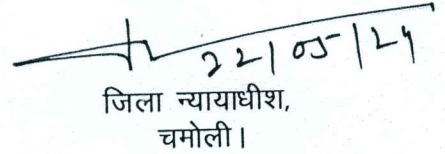 22/05/24
जिला न्यायाधीश,
चमोली।